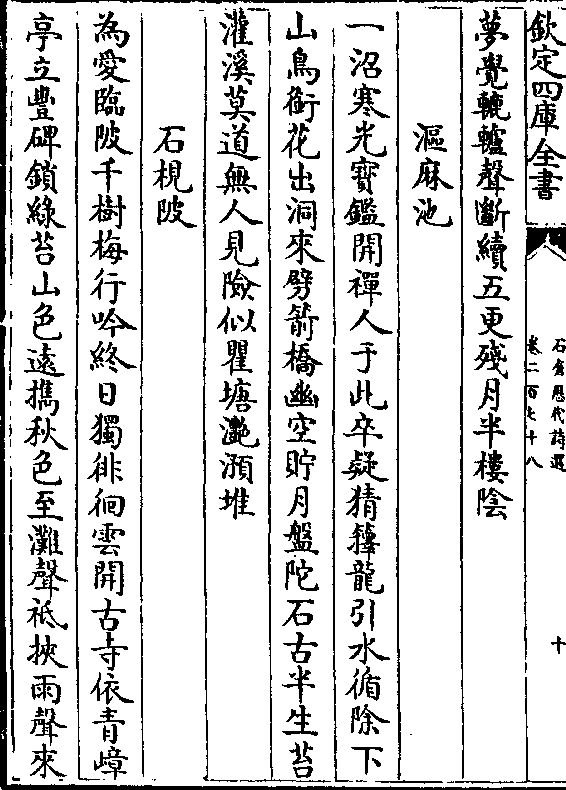 欽定四庫全書
石倉歷代詩選
卷二百七十八
十
夢覺轆轤聲斷續五更殘月半樓陰
漚麻池
一沼寒光寶鑑開禪人于此卒疑猜籜龍引水循除下
山鳥銜花出洞來劈箭橋幽空貯月盤陀石古半生苔
灌溪莫道無人見險似瞿塘灔澦堆
石梘陂
為愛臨陂千樹梅行吟終日獨徘徊雲開古寺依青嶂
亭立豐碑鎖綠苔山色遠攜秋色至灘聲祗挾雨聲來